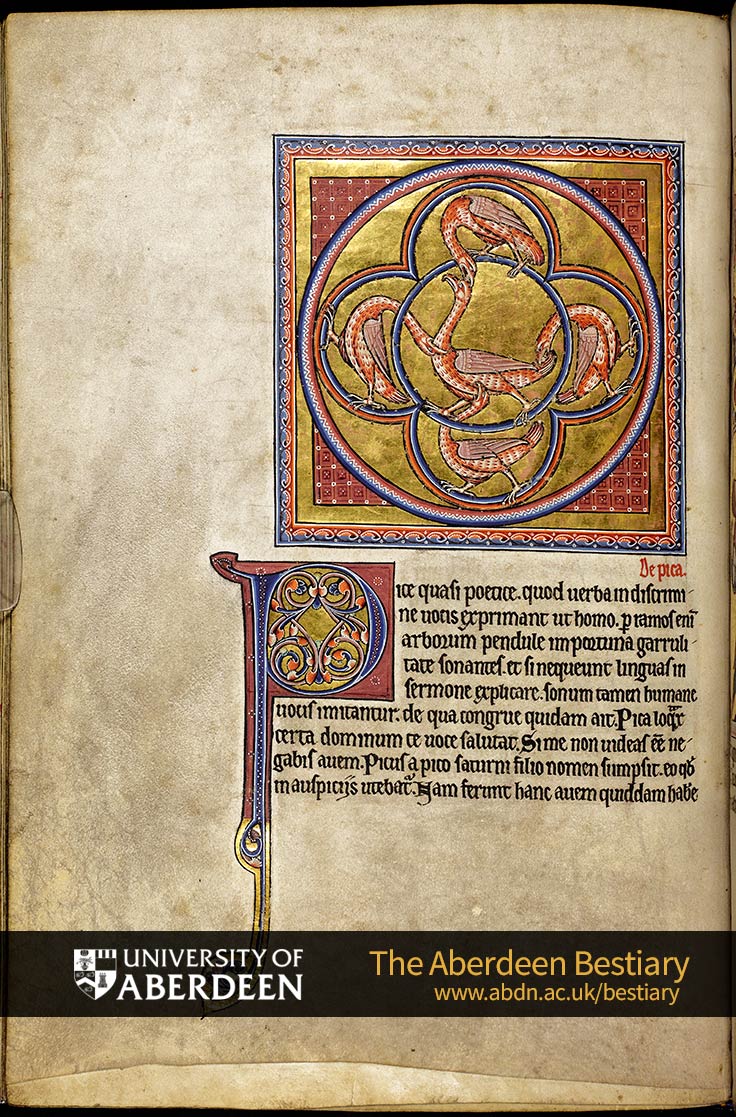 De pica.
Pice quasi poetice. quod uerba in discrimi-
ne uocis exprimant ut homo. p ramos enī
arborum pendule importuna garruli-
tate sonantes. et si nequeunt linguas in
sermone explicare. sonum tamen humane
uocis imitantur. de qua congrue quidam ait. Pica loqx
certa dominum te uoce salutat. Si me non uideas eē ne-
gabis auem. Picus a pico saturni filio nomen sumpsit. eo qd
in auspiciis utebat. Nam ferunt hanc auem quiddam habe
UNIVERSITY OF
ABERDEEN
The Aberdeen Bestiary
www.abdn.ac.uk/bestiary